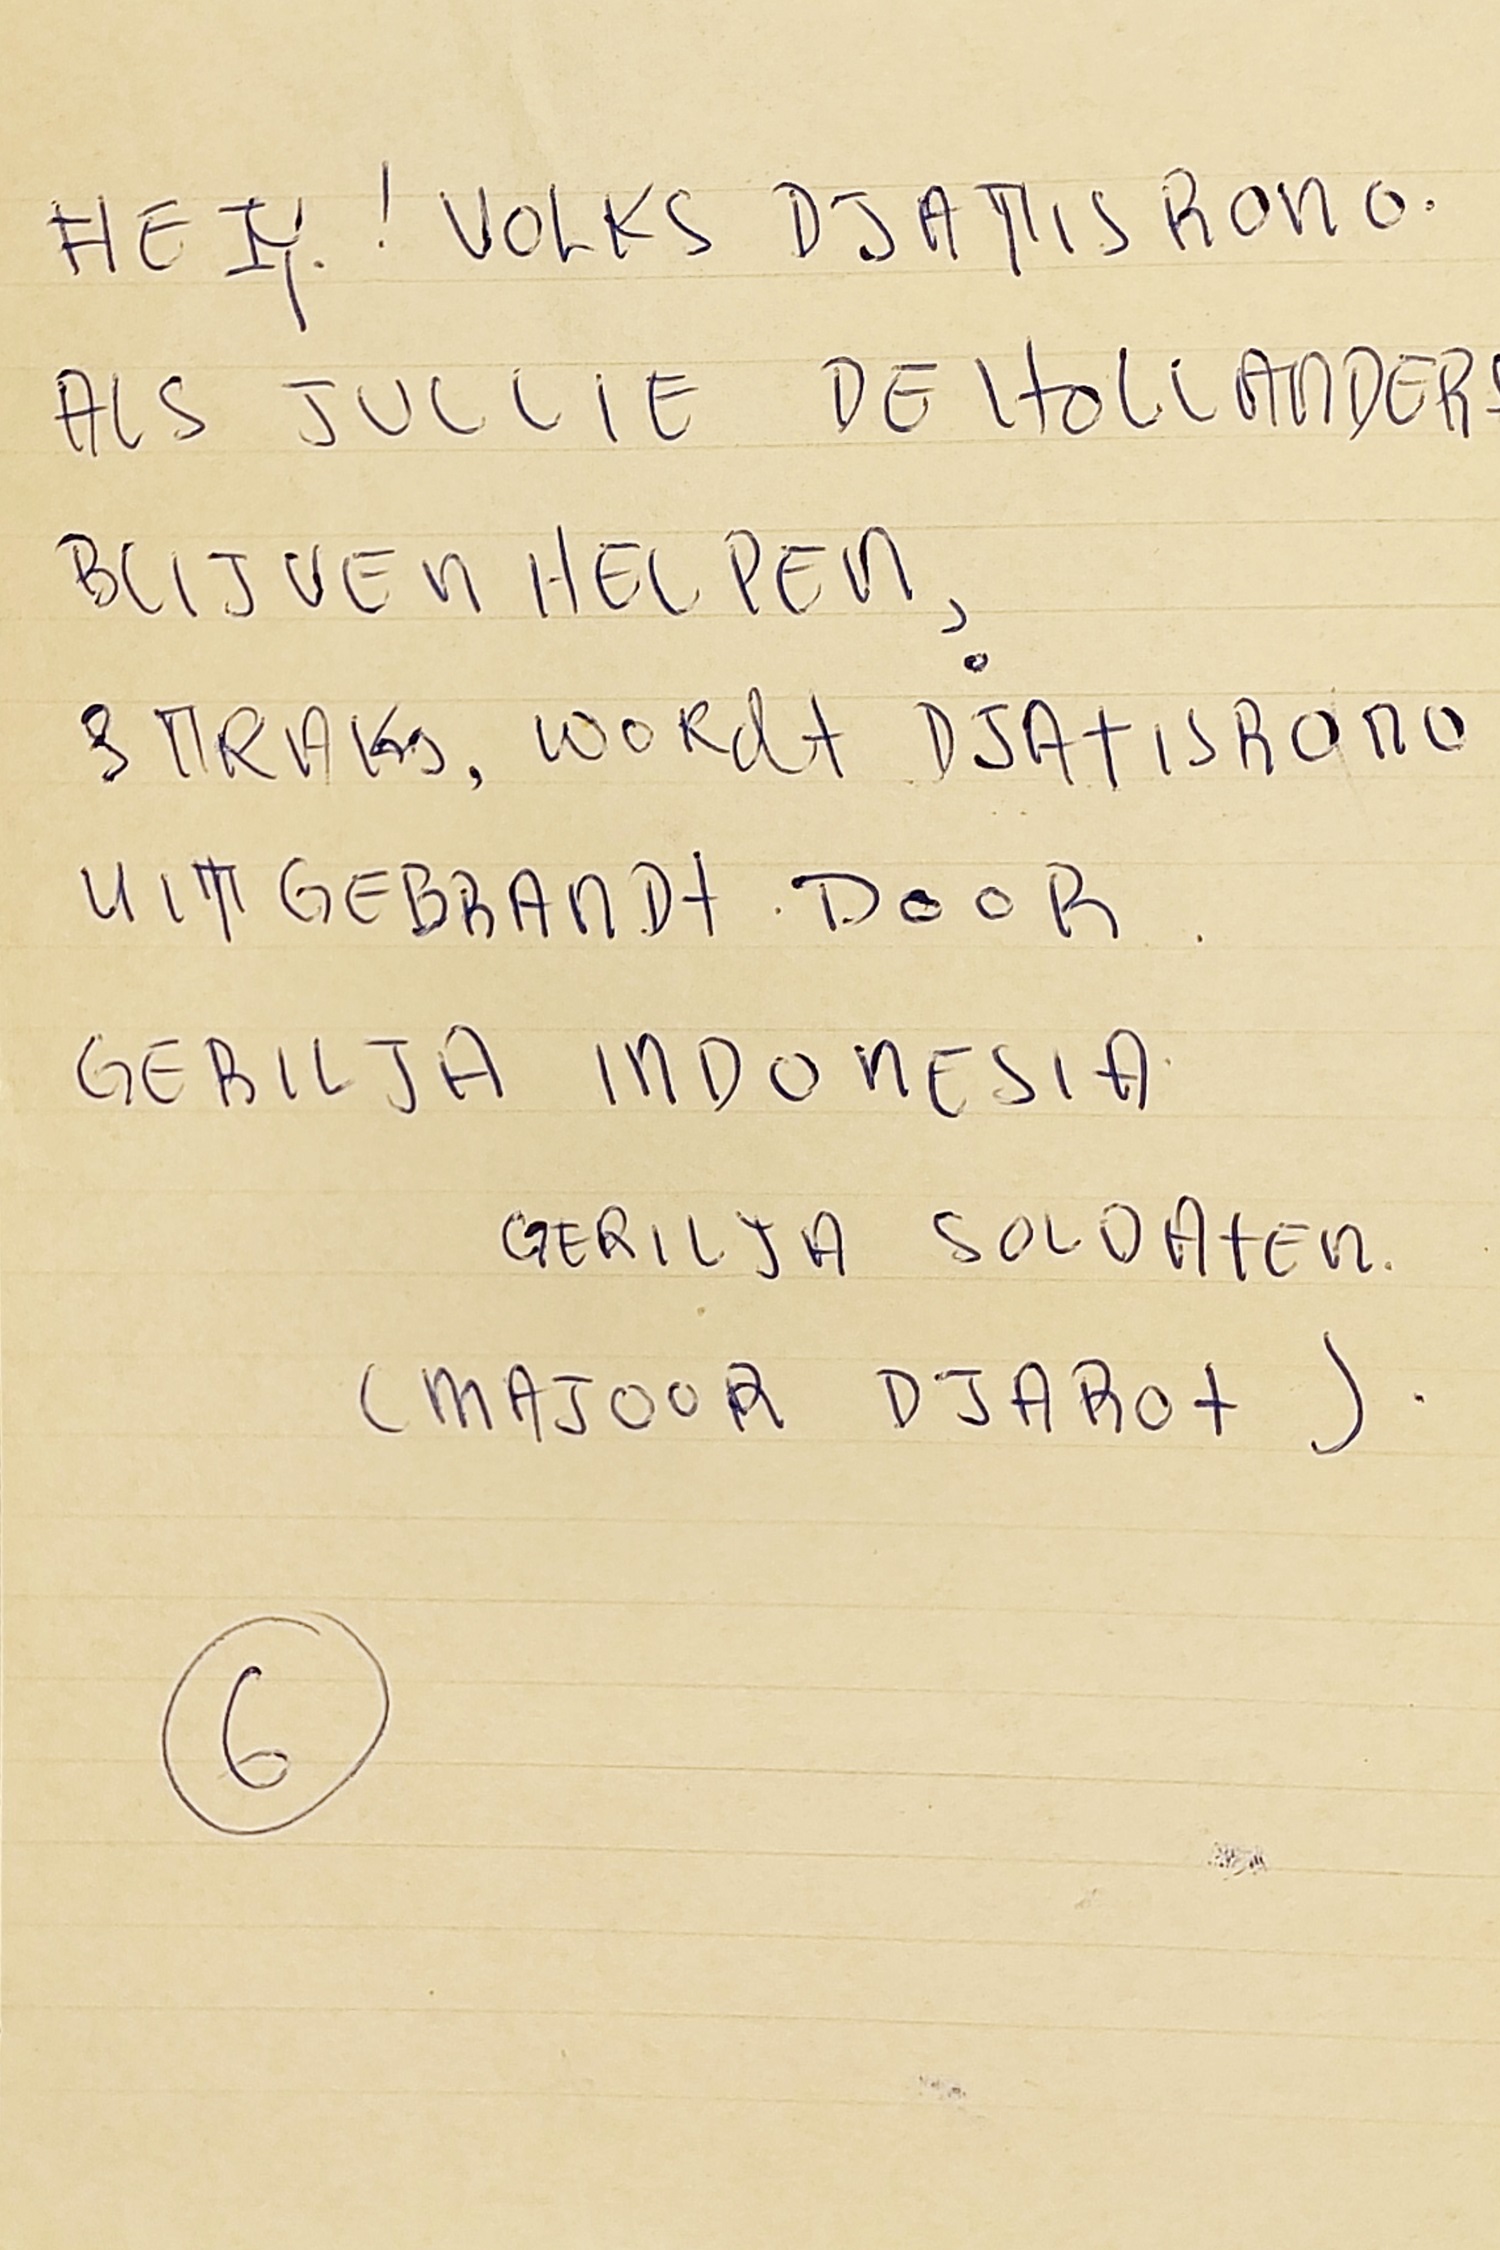 HEIY.! VOLKS DJATISRONO.
ALS JULLIE DE HOLLANDERS
BLIJVEN HELPEN,
STRAKS, WORdt DJATISRONO
UITGEBRANDt. DOOR.
GERILJA INDONESIA.
GERILJA SOLDAtEN.
(MAJOOR DJAROt).
6